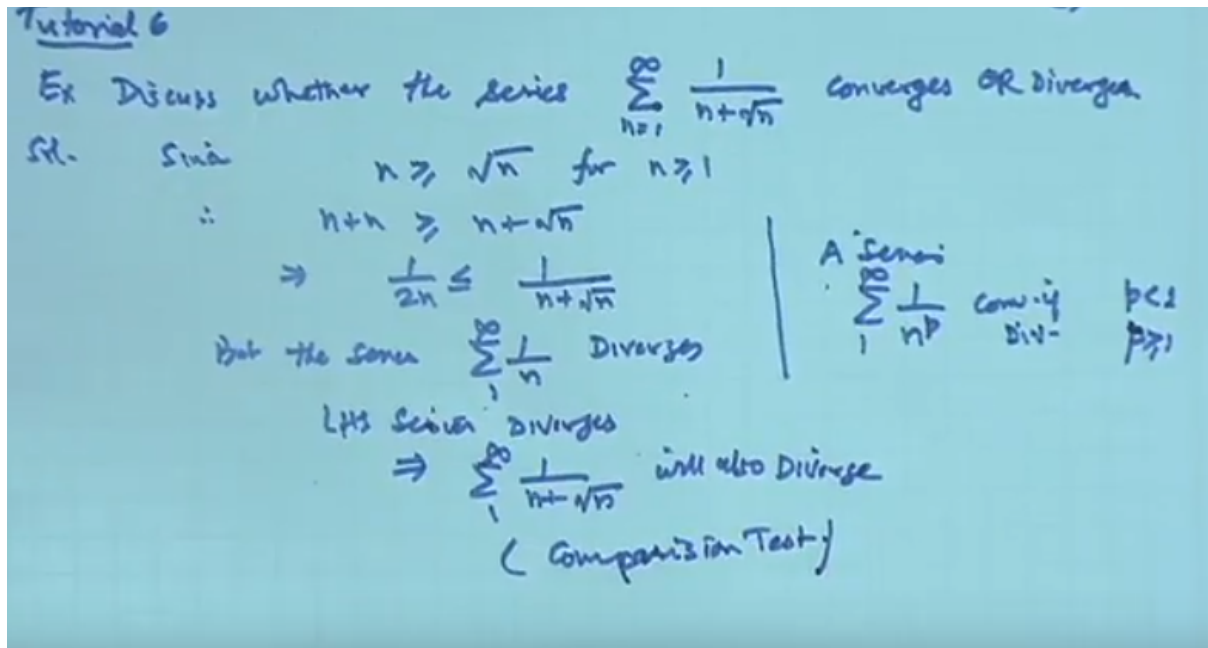 Tutorial 6
Ex Discuss whether the series ∑_{n=1}^{∞} 1/(n+√n) converges OR Diverges
Sol. Since n ≥ √n for n ≥ 1
∴ n+n ≥ n+√n
⇒ 1/2n ≤ 1/(n+√n)
But the series ∑_{1}^{∞} 1/n Diverges
LHS Series Diverges
⇒ ∑_{1}^{∞} 1/(n+√n) will also Diverge
(Comparision Test)
A Series
∑_{1}^{∞} 1/n^p Conv. if p<1
Div- p≥1